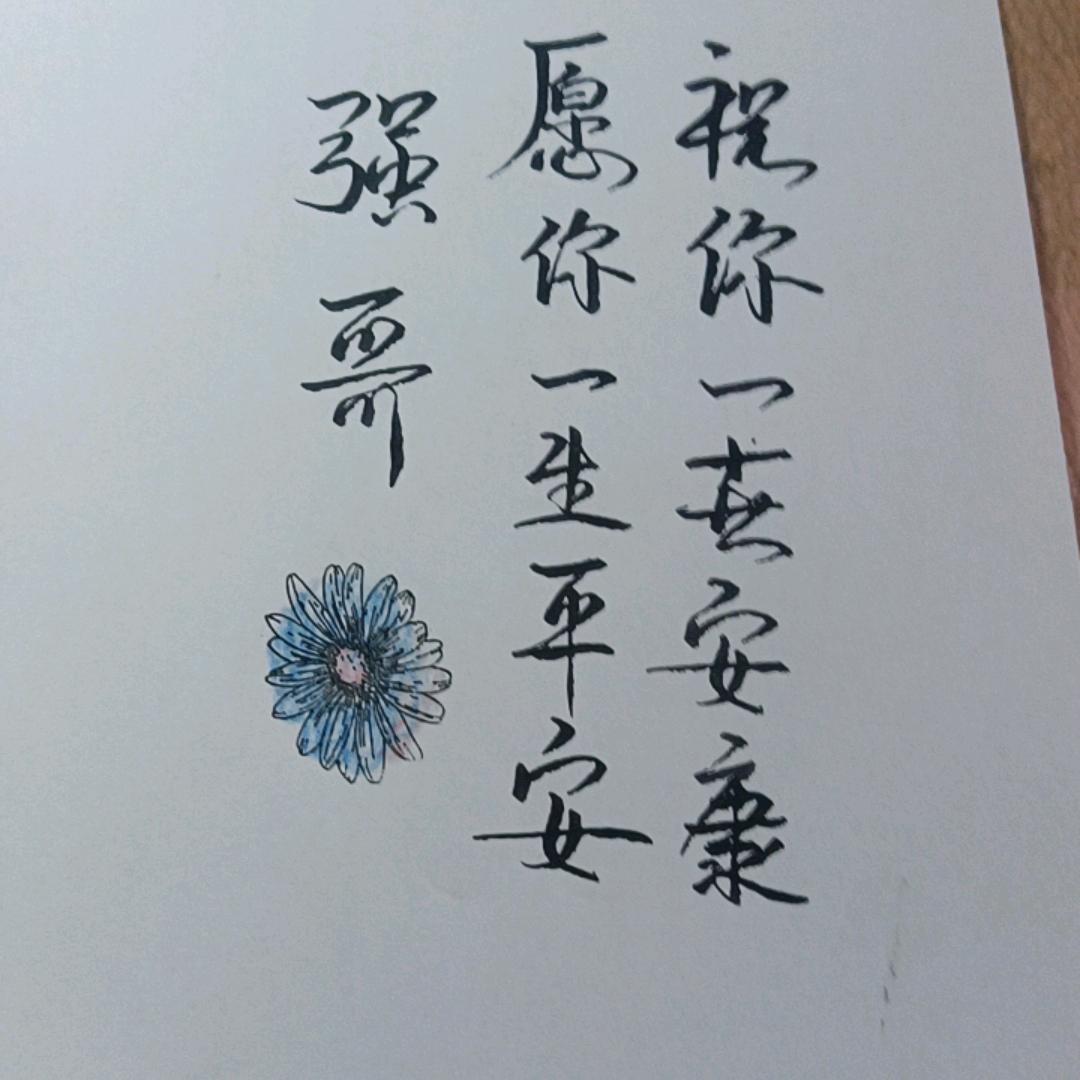 祝你一世安康
愿你一生平安
强哥